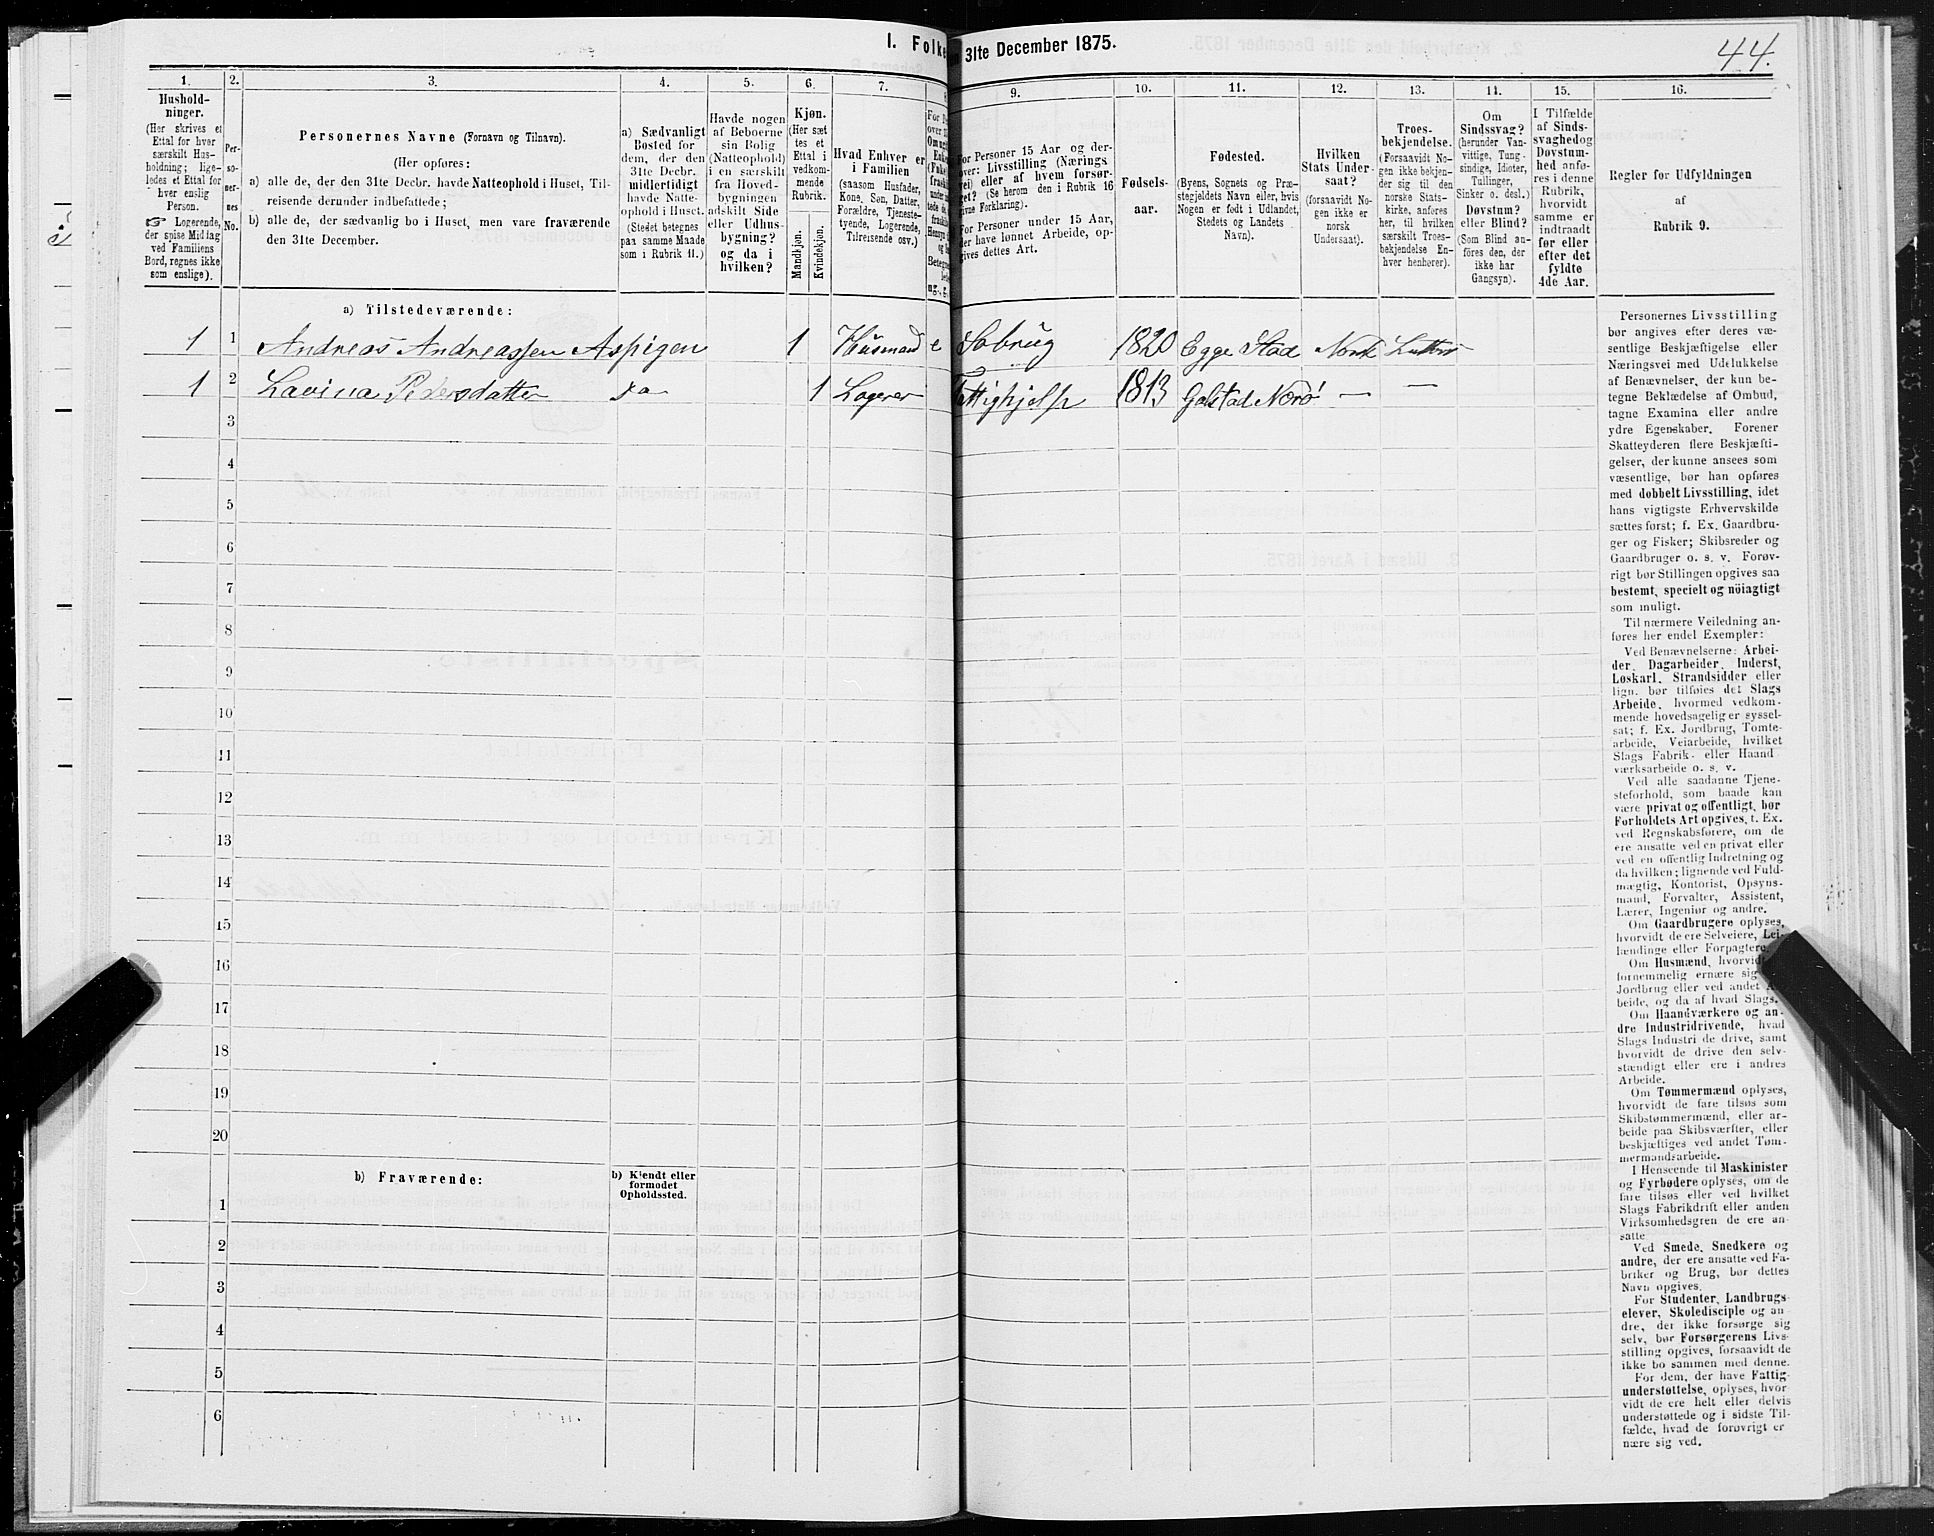 I. Folke
n 31te December 1875.
44.
1.
2.
3.
4.
5.
6.
7.
9.
10.
11.
12.
13.
14.
15.
16.
Hushold-
ninger.
(Her skrives et
Ettal for hver
særskilt Hus-
holdning; lige-
ledes et Ettal for
hver enslig
Person.
☞ Logerende,
der spise Middag
ved Familiens
Bord, regnes ikke
som enslige).
Per-
so-
ner-
nes
No.
Personernes Navne (Fornavn og Tilnavn).
(Her opføres:
a) alle de, der den 31te Decbr. havde Natteophold i Huset, Til-
reisende derunder indbefattede;
b) alle de, der sædvanlig bo i Huset, men vare fraværende
den 31te December.
a) Sædvanligt
Bosted for
dem, der den
31te Decbr.
midlertidigt
havde Natte-
ophold i Huset.
(Stedet betegnes
paa samme Maade
som i Rubrik 11.)
Havde nogen
af Beboerne
sin Bolig
(Natteophold)
i en særskilt
fra Hoved-
bygningen
adskilt Side
eller Udhus-
bygning?
og da i
hvilken?
Kjøn.
(Her sæt
tes et
Ettal i
vedkom-
mende
Rubrik.
Mandkjøn.
Kvindekjøn.
Hvad Enhver er
i Familien
(saasom Husfader,
Kone, Søn, Datter,
Forældre, Tjeneste-
tyende, Logerende,
Tilreisende osv.)
For Personer 15 Aar og der-
over: Livsstilling (Nærings
vei) eller af hvem forsør-
get? (Se herom den i Rubrik 16
givne Forklaring).
For Personer under 15 Aar,
der have lønnet Arbeide, op-
gives dettes Art.
Fødsels-
aar.
Fødested.
(Byens, Sognets og Præ-
stegjeldets Navn eller, hvis
Nogen er født i Udlandet,
Stedets og Landets
Navn).
Hvilken
Stats Under-
saat?
(forsaavidt No-
gen ikke er
norsk
Undersaat).
Troes-
bekjendelse.
(Forsaavidt No-
gen ikke bekjen-
der sig til den
norske Stats-
kirke, anføres
her, til hvilken
særskilt Troes-
bekjendelse En-
hver henhører).
Om
Sindssvag?
(herunder Van-
vittige, Tung-
sindige, Idioter,
Tullinger,
Sinker o. desl.)
Døvstum?
eller Blind?
(Som Blind an-
føres den, der
ikke har
Gangsyn).
I Tilfælde
af Sinds-
svaghed og
Døvstum-
hed anfø-
res i denne
Rubrik,
hvorvidt
samme er
indtraadt
før eller
efter det
fyldte
4de Aar.
Regler for Udfyldningen
af
Rubrik 9.
a) Tilstedeværende:
1 1 Andreas Andreassen Aspigen 1 Husmand e Jobrug 1820 Egge Stod Norsk
1 2 Lavina Pedersdatter 1 Logerer Fattighjelp 1813 Nærø — —
3
4
5
6
7
8
9
10
11
12
13
14
15
16
17
18
19
20
b) Fraværende:
b) Kjendt eller
formodet
Opholdssted.
1
2
3
4
5
6
Personernes Livsstilling
bør angives efter deres væ-
sentlige Beskjæftigelse eller
Næringsvei med Udelukkelse
af Benævnelser, der kun be-
tegne Beklædelse af Ombud,
tagne Examina eller andre
ydre Egenskaber. Forener
Skatteyderen flere Beskjæfti-
gelser, der kunne ansees som
væsentlige, bør han opføres
med dobbelt Livsstilling, idet
hans vigtigste Erhvervskilde
sættes først; f. Ex. Gaardbru-
ger og Fisker; Skibsreder og
Gaardbruger o. s. v. Forøv-
rigt bør Stillingen opgives saa
bestemt, specielt og nöiagtigt
som muligt.
Til nærmere Veiledning an-
føres her endel Exempler:
Ved Benævnelserne: Arbei-
der, Dagarbeider, Inderst,
Løskarl, Strandsidder eller
lign. bør tilføies det Slags
Arbeide, hvormed vedkom-
mende hovedsagelig er syssel-
sat; f. Ex. Jordbrug, Tomte-
arbeide, Veiarbeide, hvilket
Slags Fabrik- eller Haand
værksarbeide o. s. v.
Ved alle saadanne Tjene-
steforhold, som baade kan
være privat og offentligt, bør
Forholdets Art opgives, t. Ex.
ved Regnskabsførere, om de
ere ansatte ved en privat eller
ved en offentlig Indretning og
da hvilken; lignende ved Fuld-
mægtig, Kontorist, Opsyns-
mand, Forvalter, Assistent,
Lærer, Ingeniør og andre.
Om Gaardbrugere oplyses,
hvorvidt de ere Selveiere, Lei-
lændinge eller Forpagtere.
Om Husmænd, hvorvidt
fornemmelig ernære sig
Jordbrug eller ved andet
beide, og da af hvad Slags.
Om Haandværkere og an-
dre Industridrivende, hvad
Slags Industri de drive, samt
hvorvidt de drive den selv-
stændigt eller ere i andres
Arbeide.
Om Tømmermænd oplyses,
hvorvidt de fare tilsøs som
Skibstømmermænd, eller ar-
beide paa Skibsværfter, eller
beskjæftiges ved andet Tøm-
mermandsarbeide.
I Henseende til Maskinister
og Fyrbødere oplyses, om de
fare tilsøs eller ved hvilket
Slags Fabrikdrift eller anden
Virksomhedsgren de ere an-
satte
Ved Smede, Snedkere og
andre, der ere ansatte ved Fa-
briker og Brug, bør dettes
Navn opgives.
For Studenter, Landbrugs
elever, Skoledisciple og an-
dre, der ikke forsørge sig
selv, bør Forsørgerens Livs-
stilling opgives, forsaavidt de
ikke bo sammen med denne.
For dem, der have Fattig-
understøttelse, oplyses, hvor-
vidt de ere helt eller delvis
understøttede og i sidste Til-
fælde, hvad de forøvrigt er
nære sig ved.